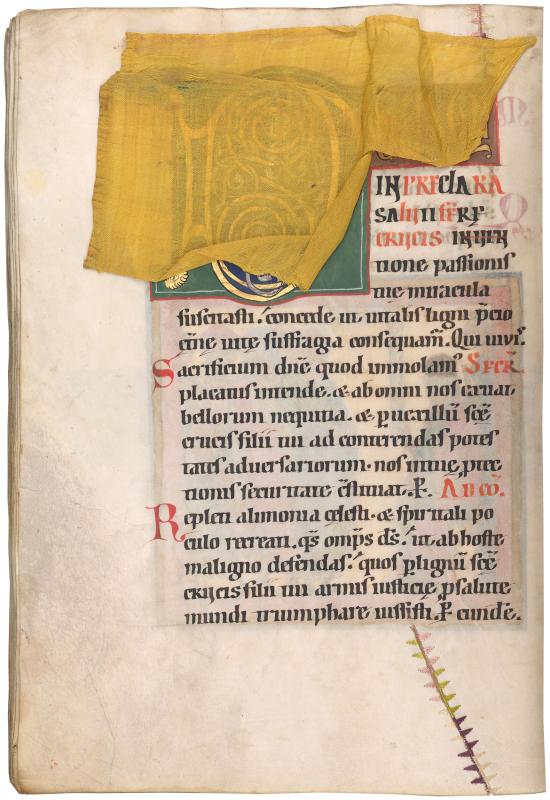 IN PRECLARA
SALUTIFERE
CRUCIS INVEN
tione passionis
tue miracula
suscitasti. concede ut vitalis ligni p̄cio
et̄ne vite suffragia consequam̄. Qui vivis.
Sacrificium dn̄e quod immolam᷒ SECR̄.
placatus intende. & ab omni nos eruat
bellorum nequitia. & p̱ vexillū sc̄e
crucis filii tui ad conterendas potes
tates adversariorum. nos in tue p̱tec
tionis securitate c̄stituat. P̱. AD CŌ.
Repleti alimonia celesti. & spiritali po
culo recreati. q̄s om̄ps d̄s. ut ab hoste
maligno defendas. quos p̱ lignū sc̄e
crucis filii tui armis iusticie p̱ salute
mundi triumphare iussisti. P̱ eundē.